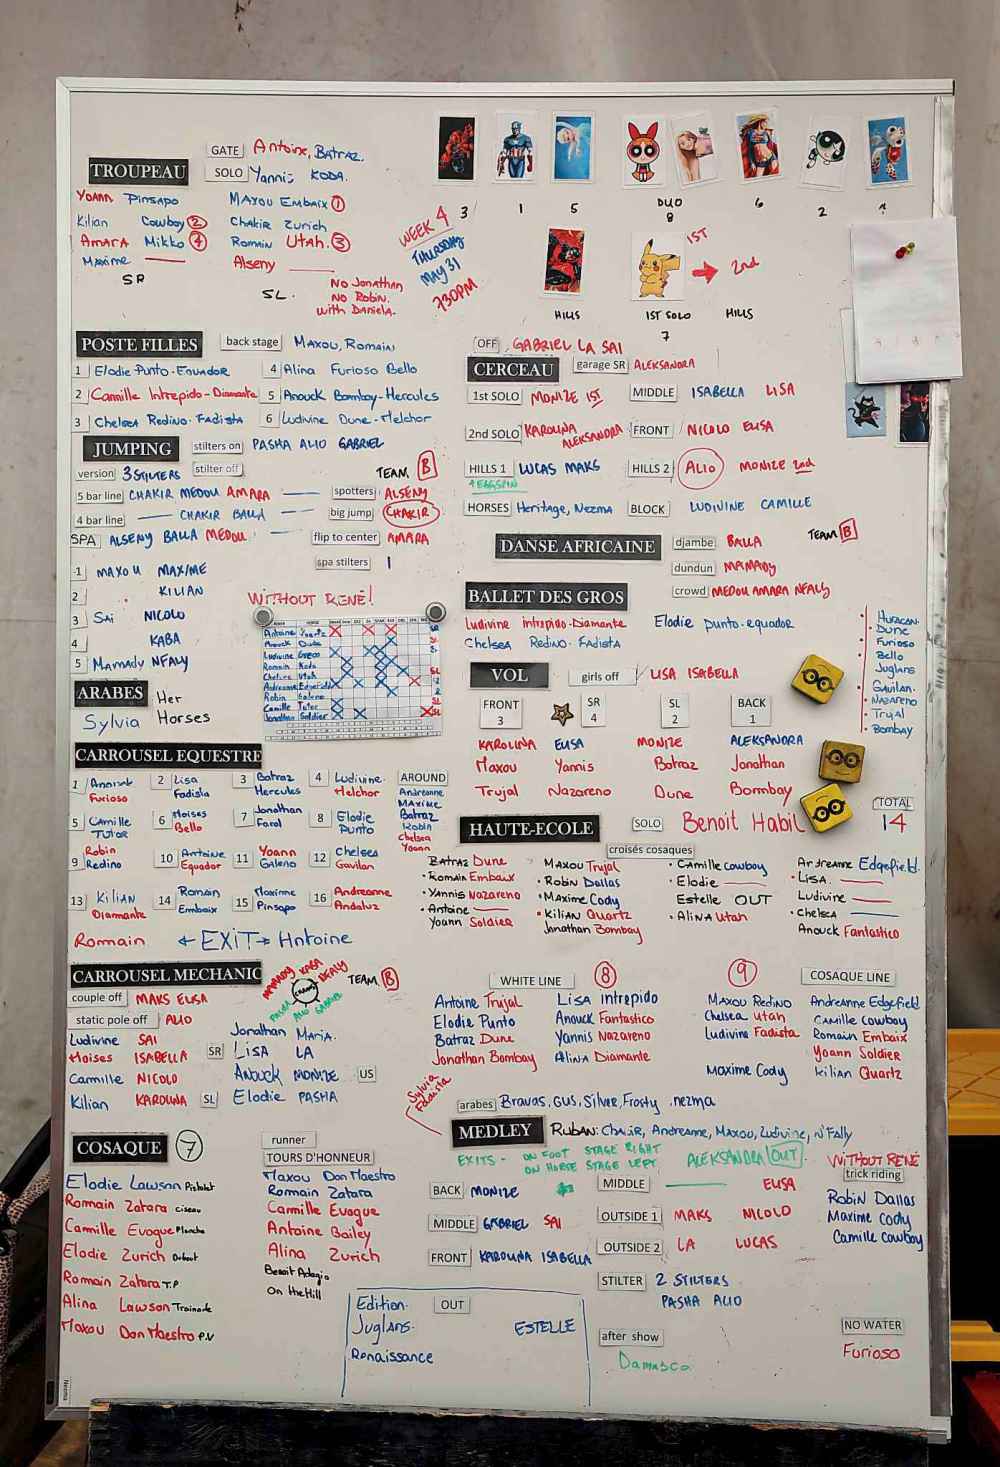 GATE Antoine, Batraz.
TROUPEAU SOLO Yannis KODA.
Yoann Pinsapo MAXOU Embaix 1
Kilian Cowboy 2 Chakir Zurich
AMARA Mikko 4 Romain UTAH. 3
Maxime Alseny
SR SL.
No Jonathan
No Robin.
with Daniela.
WEEK 4
THURSDAY
MAY 31
730PM
3 1 5 DUO 8 6 2
1ST 2nd
HILLS 1ST SOLO HILLS
7
POSTE FILLES back stage MAXOU, Romain
1 Elodie Punto-Equador 4 Alina Furioso Bello
2 Camille Intrepido-Diamante 5 Anouck Bombay-Hercules
3 Chelsea Redino-Fadista 6 Ludivine Dune-Melchor
JUMPING stilters on PASHA ALIO GABRIEL
version 3 STILTERS stilter off TEAM B
5 bar line CHAKIR MEDOU AMARA spotters ALSENY
4 bar line CHAKIR BALLA big jump CHAKIR
SPA ALSENY BALLA MEDOU flip to center AMARA
spa stilters 1
1 MAXOU MAXIME
2 KILIAN
3 SAI NICOLO
4 KABA
5 Mamady NFALY
WITHOUT RENÉ!
Antoine
Anouck Dune
Ludivine Greco
Romain Koda
Chelsea Utah
Andreanne Edgefield
Robin Galeno
Camille Tutor
Jonathan Soldier
ARABES Her
Sylvia Horses
OFF GABRIEL LA SAI
CERCEAU garage SR ALEKSANDRA
1st SOLO MONIZE 1ST MIDDLE ISABELLA LISA
2nd SOLO KAROLINA ALEKSANDRA FRONT NICOLO ELISA
HILLS 1 LUCAS MAKS HILLS 2 ALIO MONIZE 2nd
+ EGGSPIN
HORSES Heritage, Nezma BLOCK LUDIVINE CAMILLE
DANSE AFRICAINE djambe BALLA TEAM B
dundun MAMADY
crowd MEDOU AMARA NFALY
BALLET DES GROS
Ludivine intrepido-Diamante Elodie punto-equador
Chelsea Redino-Fadista
HURACAN
DUNE
Furioso
Bello
Juglans
Gavilan
Nazareno
Trujal
Bombay
VOL girls off LISA ISABELLA
FRONT 3 SR 4 SL 2 BACK 1
KAROLINA ELISA MONIZE ALEKSANDRA
Maxou Yannis Batraz Jonathan
Trujal Nazareno Dune Bombay
CARROUSEL EQUESTRE
1 Anouck Furioso 2 Lisa Fadista 3 Batraz Hercules 4 Ludivine Melchor AROUND
Andreanne
MAXIME
Batraz
Robin
Chelsea
Yoann
5 CAMILLE TUTOR 6 Moises Bello 7 Jonathan Farol 8 Elodie Punto
9 Robin Redino 10 Antoine Equador 11 Yoann Galeno 12 Chelsea Gavilan
13 KILIAN Diamante 14 Romain Embaix 15 Maxime Pinsapo 16 Andreanne Andaluz
Romain EXIT Antoine
TOTAL
14
HAUTE-ECOLE SOLO Benoit Habil
croisés cosaques
BATRAZ Dune MAXOU Trujal Camille cowboy Andreanne Edgefield.
Romain Embaix Robin Dallas Elodie Lisa.
Yannis Nazareno Maxime Cody Estelle OUT Ludivine
Antoine Kilian Quartz Alina Utah Chelsea
Yoann Soldier Jonathan Bombay Anouck Fantastico
CARROUSEL MECHANIC MAMADY KABA NFALY TEAM B
CHAKIR
PASHA ALIO GABRIEL
couple off MAKS ELISA
static pole off ALIO
Ludivine SAI Jonathan Maria.
Moises ISABELLA SR LISA LA
Camille NICOLO ANOUCK MONIZE US
Kilian KAROLINA SL Elodie PASHA
WHITE LINE 8 9 COSAQUE LINE
Antoine Trujal Lisa Intrepido MAXOU Redino Andreanne Edgefield
Elodie Punto Anouck Fantastico Chelsea Utah Camille Cowboy
Batraz Dune Yannis Nazareno Ludivine Fadista Romain Embaix
Jonathan Bombay Alina Diamante Yoann Soldier
Maxime Cody Kilian Quartz
Sylvia
Fadista
arabes Bravas, Gus, Silver, Frosty, nezma
COSAQUE 7
Elodie Lawson Pistolet
Romain Zatara ciseau
Camille Evoque Planche
Elodie Zurich Debout
Romain Zatara T.P
Alina Lawson Trainade
Maxou Don Maestro P.V
runner
TOURS D'HONNEUR
Maxou Don Maestro
Romain Zatara
Camille Evoque
Antoine Bailey
Alina Zurich
Benoit Adagio
On the Hill
MEDLEY RUBAN: Chakir, Andreanne, Maxou, Ludivine, N'Faly
EXITS - ON FOOT STAGE RIGHT
ON HORSE STAGE LEFT
ALEKSANDRA OUT
WITHOUT RENÉ
BACK MONIZE MIDDLE ELISA
MIDDLE GABRIEL SAI OUTSIDE 1 MAKS NICOLO
FRONT KAROLINA ISABELLA OUTSIDE 2 LA LUCAS
trick riding
Robin Dallas
Maxime Cody
Camille Cowboy
STILTER 2 STILTERS
PASHA ALIO
Edition OUT
Juglans. ESTELLE
Renaissance
after show
Damasco
NO WATER
Furioso